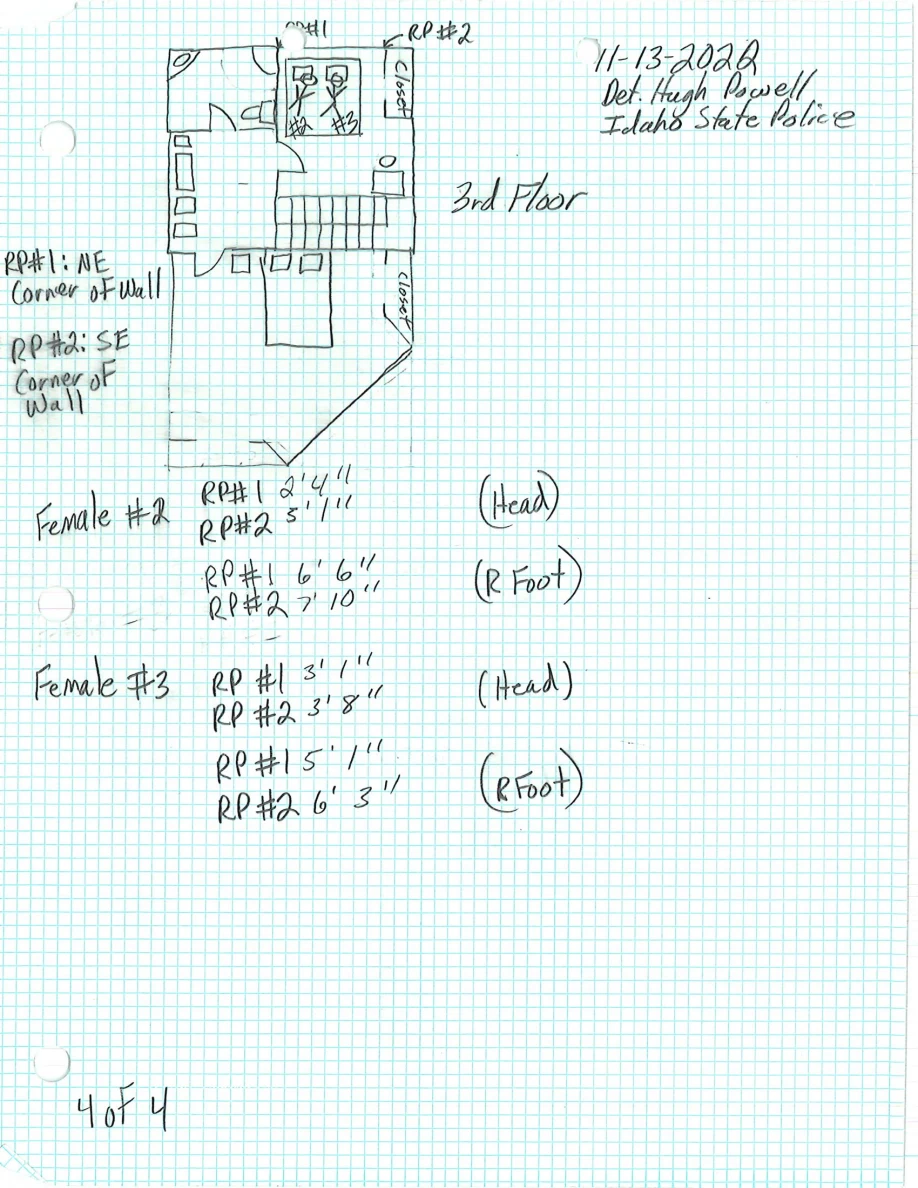 RP#1
RP#2
11-13-2022
Det. Hugh Powell
Idaho State Police
Closet
#2 #3
3rd Floor
RP#1: NE
Corner of Wall
Closet
RP#2: SE
Corner of
Wall
Female #2 RP#1 2'4" (Head)
RP#2 5'1"
RP#1 6' 6" (R Foot)
RP#2 7' 10"
Female #3 RP #1 3' 1" (Head)
RP #2 3' 8"
RP #1 5' 1" (R Foot)
RP #2 6' 3"
4 of 4